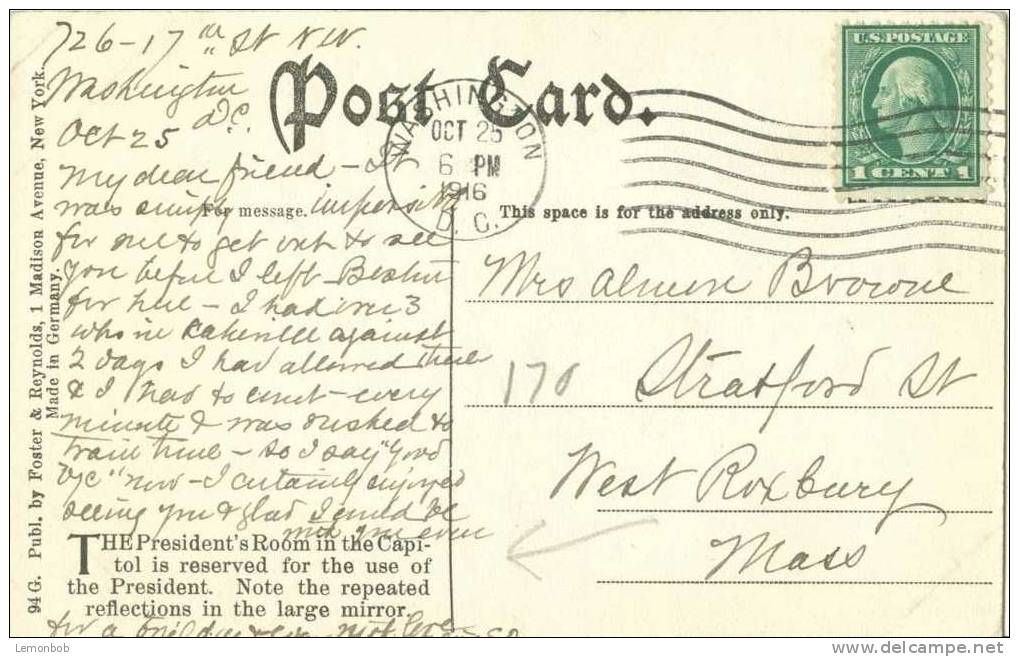 726-17th St NW.
Washington
D.C.
Oct 25
My dear friend - It
was simply impossible
for me to get out to see
you before I left Boston
for here - I had over 3
who in Lakeville against
2 days I had allowed there
& I had to count every
minute & was rushed to
train time - so I say "Good
bye" now - I certainly enjoyed
seeing you & glad I could be
with you even
for a
Post Card.
WASHINGTON
OCT 25
6 PM
1916
D. C.
U.S. POSTAGE
1 CENT 1
For message.
This space is for the address only.
Mrs Browne
170 Stratford St
West Roxbury
Mass
THE President's Room in the Capi-
tol is reserved for the use of
the President. Note the repeated
reflections in the large mirror.
94 G. Publ. by Foster & Reynolds, 1 Madison Avenue, New York.
Made in Germany.
Lemonbob
www.delcampe.net